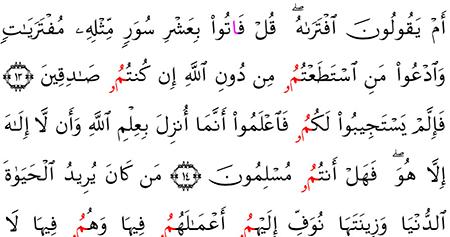 أَمۡ يَقُولُونَ ٱفۡتَرَىٰهُۖ قُلۡ فَاتُواْ بِعَشۡرِ سُوَرٖ مِّثۡلِهِۦ مُفۡتَرَيَٰتٖ
وَٱدۡعُواْ مَنِ ٱسۡتَطَعۡتُمُۥ مِن دُونِ ٱللَّهِ إِن كُنتُمُۥ صَٰدِقِينَ ١٣
فَإِلَّمۡ يَسۡتَجِيبُواْ لَكُمُۥ فَٱعۡلَمُواْ أَنَّمَا أُنزِلَ بِعِلۡمِ ٱللَّهِ وَأَن لَّا إِلَٰهَ
إِلَّا هُوَۖ فَهَلۡ أَنتُمُۥ مُسۡلِمُونَ ١٤ مَن كَانَ يُرِيدُ ٱلۡحَيَوٰةَ
ٱلدُّنۡيَا وَزِينَتَهَا نُوَفِّ إِلَيۡهِمُۥ أَعۡمَٰلَهُمُۥ فِيهَا وَهُمُۥ فِيهَا لَا